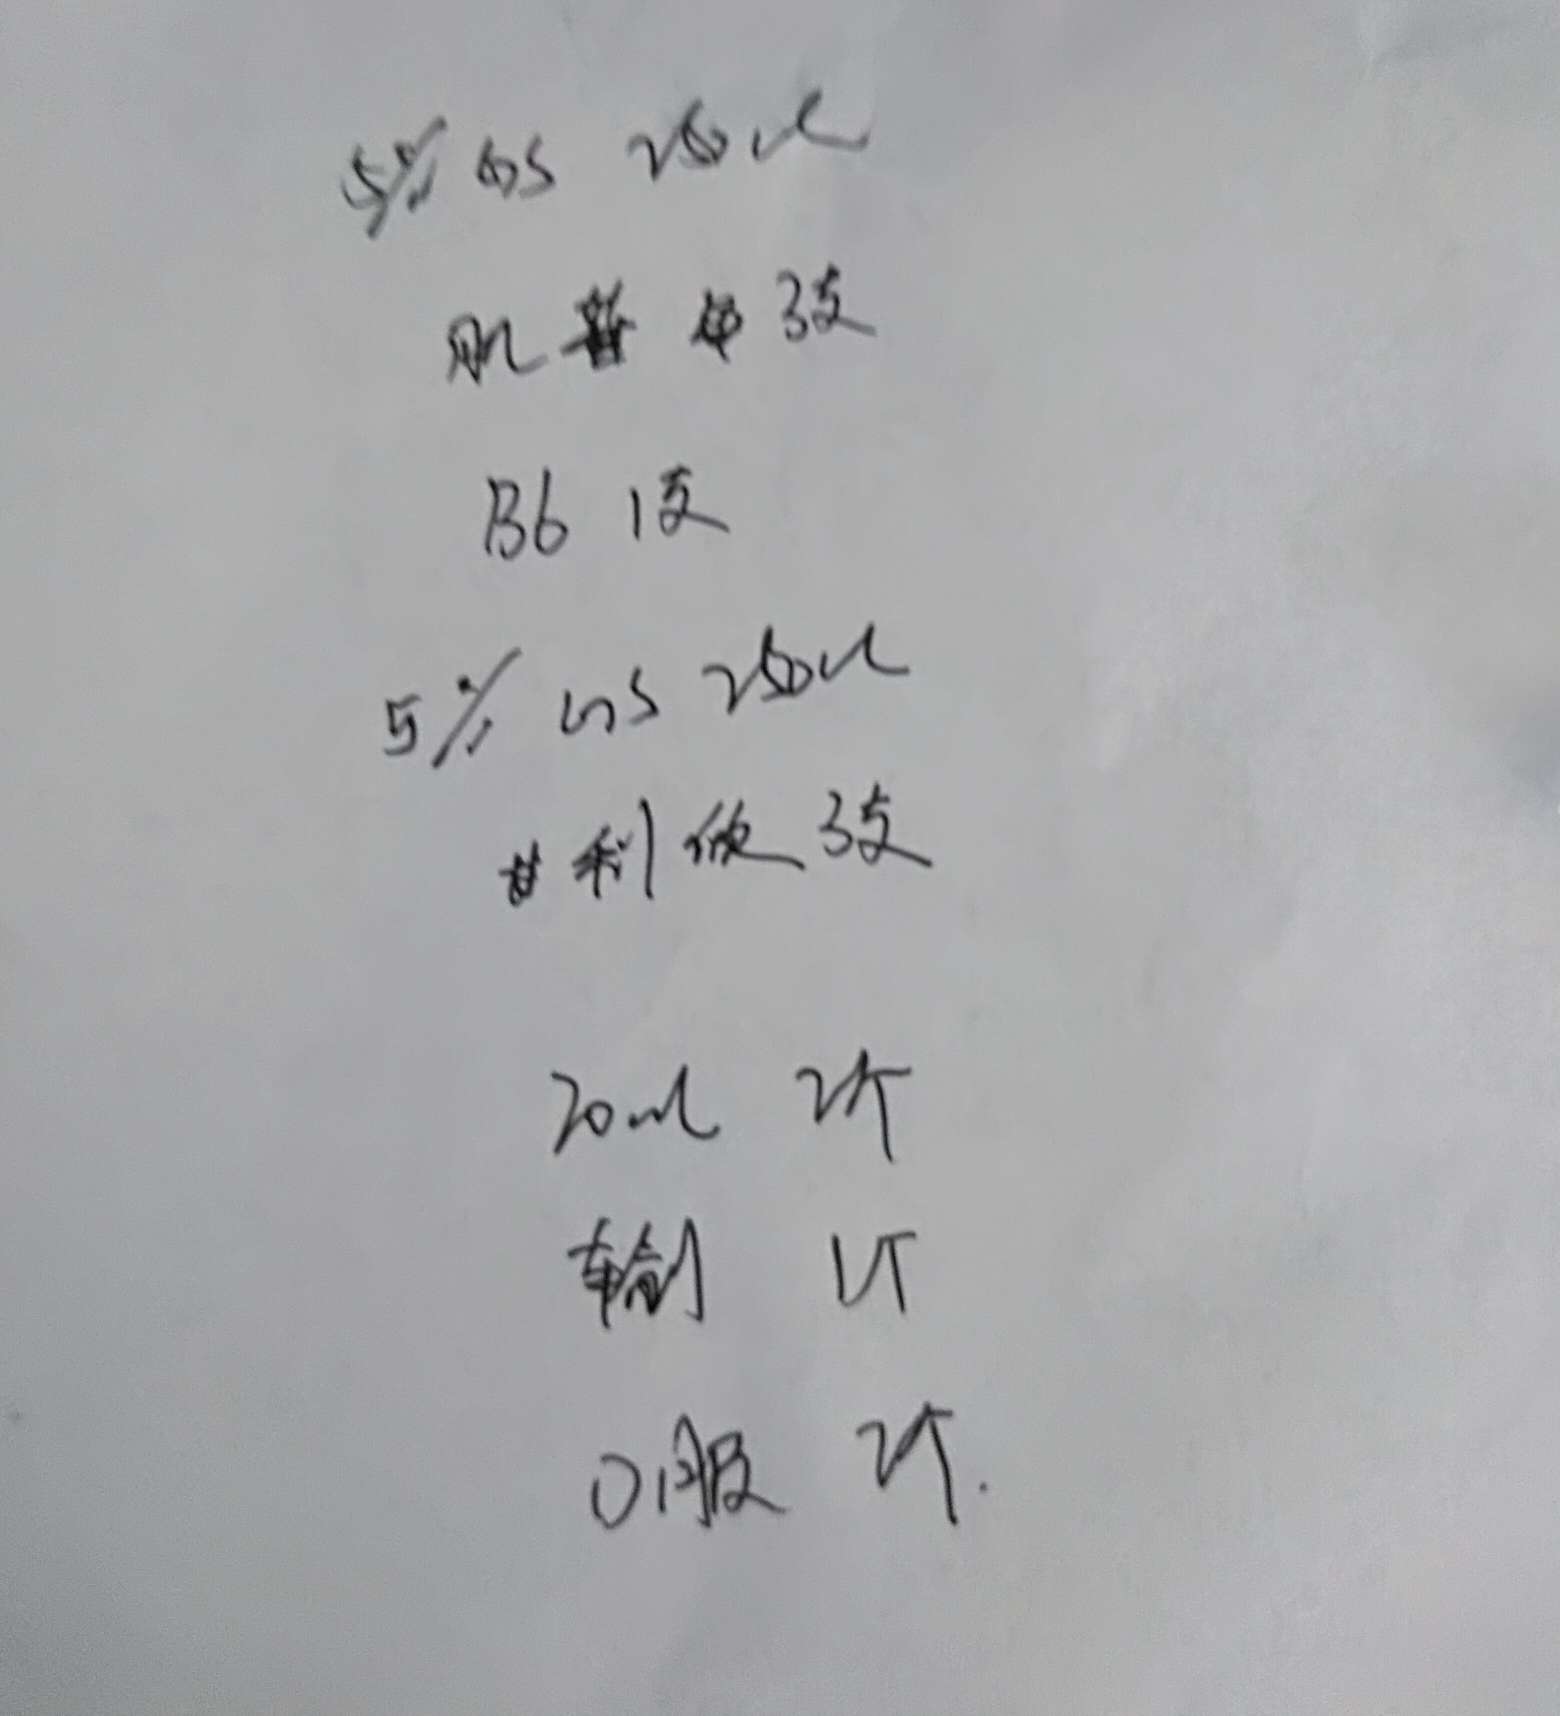 5% GS 250ml
肌苷 3支
B6 1支
5% GS 250ml
甘利欣 3支
20ml 2个
输 1个
口服 2个.